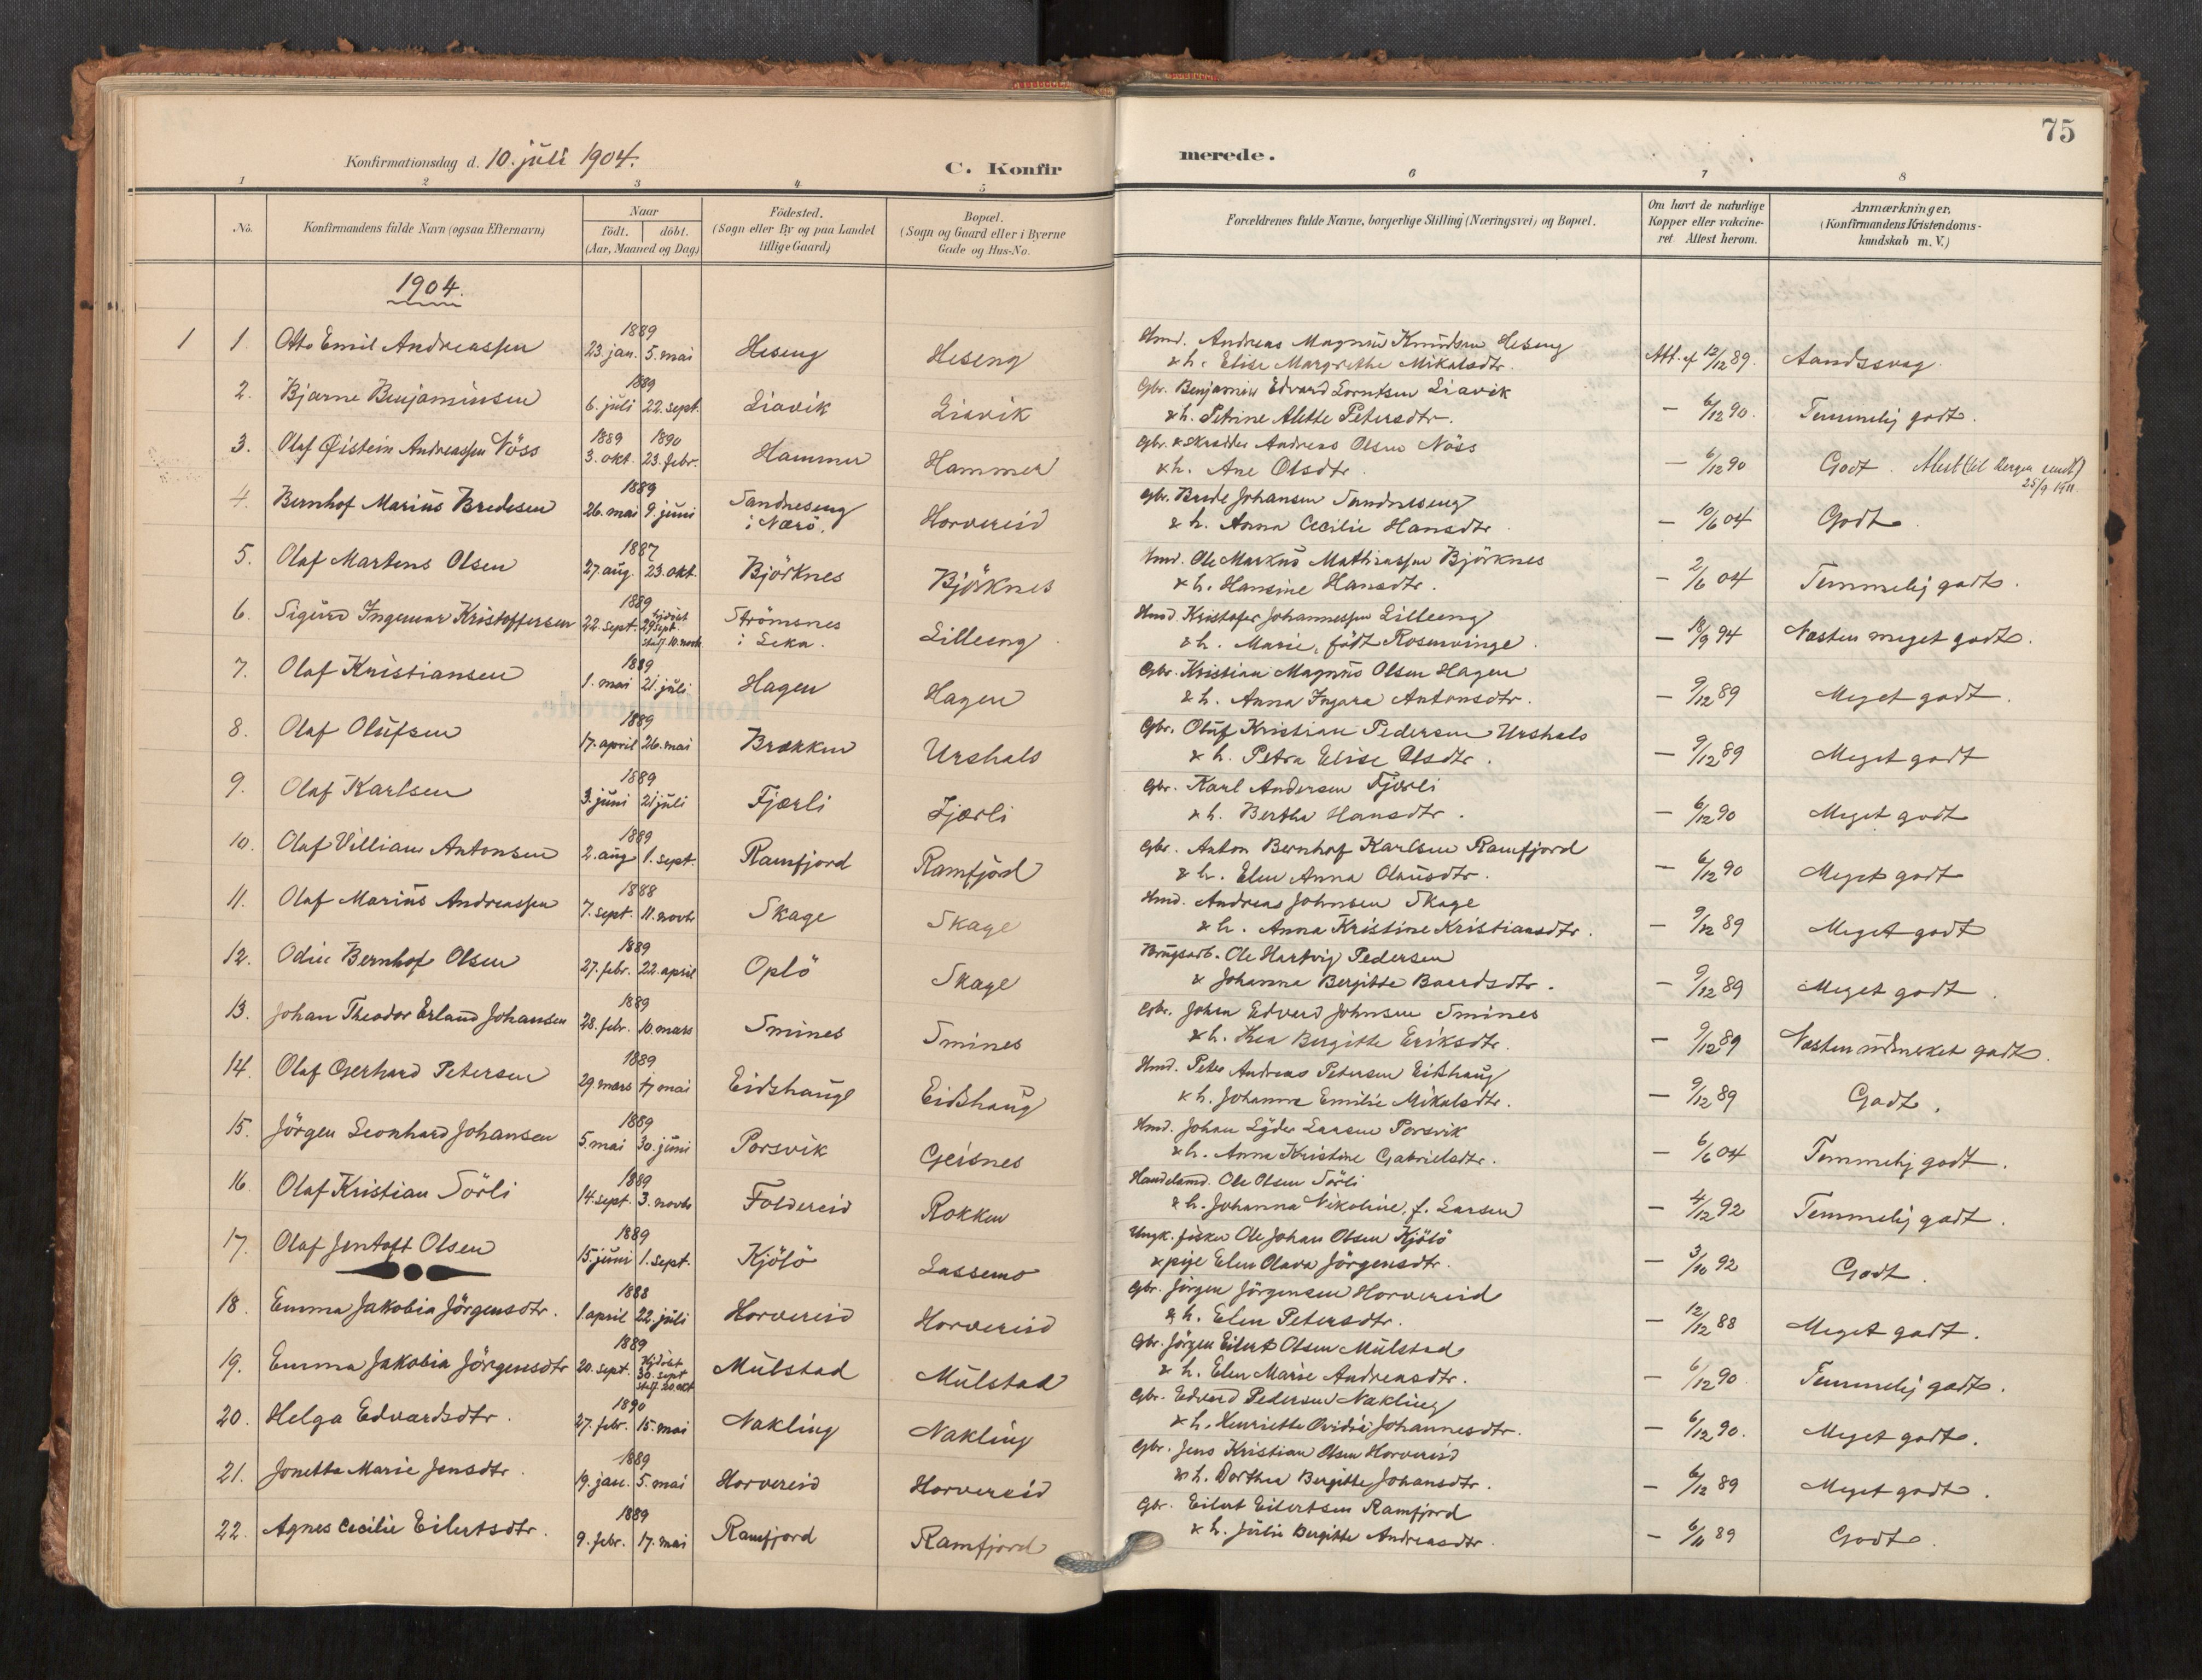 75
Konfirmationsdag d. 10. juli 1904.
C. Konfirmerede.
1 2 3 4 5 6 7 8
No.
Konfirmandens fulde Navn (ogsaa Efternavn)
Naar
födt. döbt.
(Aar, Maaned og Dag)
Födested.
(Sogn eller By og paa Landet
tillige Gaard)
Bopæl.
(Sogn og Gaard eller i Byerne
Gade og Hus-No.
Forældrenes fulde Navne, borgerlige Stilling (Næringsvei) og Bopæl.
Om havt de naturlige
Kopper eller vakcine-
ret Attest herom.
Anmærkninger,
(Konfirmandens Kristendoms-
kundskab m. V.)
1904.
1 1. Otto Emil Andreassen 1889 23. jan. 5. mai Heseng Heseng
Hmd. Andreas Magnus Knudsen Heseng
& h. Elise Margrethe Mikalsdtr. Att. af 12/12 89. Aandssvag
2. Bjarne Benjaminsen 1889 6. juli 22. sept. Liavik Liavik
Gbr. Benjamin Edvard Lorntsen Liavik
& h. Petrine Alette Petersdtr. — 6/12 90. Temmelig godt.
3. Olaf Øistein Andreassen Nöss 1889 3. okt. 1890 23. febr. Hammer Hammer
Gbr. & skrædder Andreas Olsen Nöss
& h. Ane Olsdtr. — 6/12 90 Godt. Attest (til Bergen sendt) 25/9 1911.
4. Bernhof Marius Bredesen 1889 26. mai 9. juni Sandneseng i Nærö. Horvereid
Gbr. Brede Johansen Sandneseng
& h. Anna Cecilie Hansdtr. — 10/6 04 Godt
5. Olaf Martens Olsen 1887 27. aug. 23. okt. Björknes Björknes
Hmd. Ole Markus Mathiassen Björknes
& h. Hansine Hansdtr. — 2/6 04 Temmelig godt.
6. Sigurd Ingemar Kristoffersen 1889 22. sept. hjdöbt 29 sept. stadf. 10. novb Strömsnes i Leka. Lilleeng
Hmd. Kristofer Johannessen Lilleeng
& h. Marie, född Rosenvinge. — 18/9 94 Næsten meget godt.
7. Olaf Kristiansen 1889 1. mai 21. juli Hagen Hagen
Gbr. Kristian Magnus Olsen Hagen
& h. Anna Ingara Antonsdtr. — 9/12 89 Meget godt.
8. Olaf Olufsen 1889 17. april 26. mai Brækken Urshals
Gbr. Oluf Kristian Pedersen Urshals
& h. Petra Elise Olsdtr. — 9/12 89 Meget godt
9. Olaf Karlsen 1889 3. juni 21 juli Fjærli Fjærli
Gbr. Karl Andersen Fjærli
& h. Bertha Hansdtr. — 6/12 90 Meget godt
10. Olaf Villiam Antonsen 1889 2. aug 1. sept. Ramfjord Ramfjord
Gbr. Anton Bernhof Karlsen Ramfjord
& h. Elen Anna Olausdtr. — 6/12 90 Meget godt
11. Olaf Marius Andreassen 1888 7. sept. 11. novb Skage Skage
Hmd. Andreas Johnsen Skage
& h. Anna Kristine Kristiansdtr. — 9/12 89 Meget godt
12. Odin Bernhof Olsen 1889 27. febr. 22. april Oplö Skage
Brugsarb. Ole Hartvig Pedersen
& Johanna Bergitte Baardsdtr. — 9/12 89 Meget godt.
13. Johan Theodor Erland Johansen 1889 28. febr. 10. mars Smines Smines
Gbr. Johan Edvard Johnsen Smines
& h. Thea Bergitte Eriksdtr. — 9/12 89 Næsten udmerket godt.
14. Olaf Gerhard Petersen 1889 29. mars 17 mai Eidshaug Eidshaug
Hmd. Peter Andreas Petersen Eidshaug
& h. Johanna Emilie Mikalsdtr. — 9/12 89 Godt.
15. Jörgen Leonhard Johansen 1889 5. mai 30. juni Porsvik Geisnes
Hmd. Johan Lyder Larsen Porsvik
& h. Anna Kristine Gabrielsdtr. — 6/6 04 Temmelig godt.
16 Olaf Kristian Sörli 1889 14. sept. 3. novb Foldereid Rokken
Handelsmd. Ole Olsen Sörli
& h. Johanna Nikoline, f. Larsen — 4/12 92 Temmelig godt.
17. Olaf Jentoft Olsen 1889 15. juni 1. sept. Kjölö Lassemo
Ungk. fisker Ole Johan Olsen Kjölö
& pige Elen Olava Jörgensdtr. — 3/10 92 Godt.
18. Emma Jakobia Jörgensdtr. 1888 1. april 22. juli Horvereid Horvereid
Gbr. Jörgen Jörgensen Horvereid
& h. Elen Petersdtr. — 12/12 88 Meget godt.
19. Emma Jakobia Jörgensdtr 1889 20. sept. Hjdöbt 30. sept stadf. 20. okt Mulstad Mulstad
Gbr. Jörgen Eilert Olsen Mulstad
& h. Elen Marie Andreasdtr. — 6/12 90 Temmelig godt.
20. Helga Edvardsdtr. 1890 27. febr. 15. mai Nakling Nakling
Gbr. Edvard Pedersen Nakling
& h. Henriette Ovidie Johannesdtr. — 6/12 90. Meget godt.
21. Jonetta Marie Jensdtr. 1889 19. jan. 5. mai Horvereid Horvereid
Gbr. Jens Kristian Olsen Horvereid
& h. Dorthea Bergitte Johansdtr. — 6/12 89 Meget godt.
22. Agnes Cecilie Eilertsdtr. 1889 9. febr. 17. mai Ramfjord Ramfjord
Gbr. Eilert Eilertsen Ramfjord
& h. Julie Bergitte Andreasdtr. — 6/11 89 Godt.